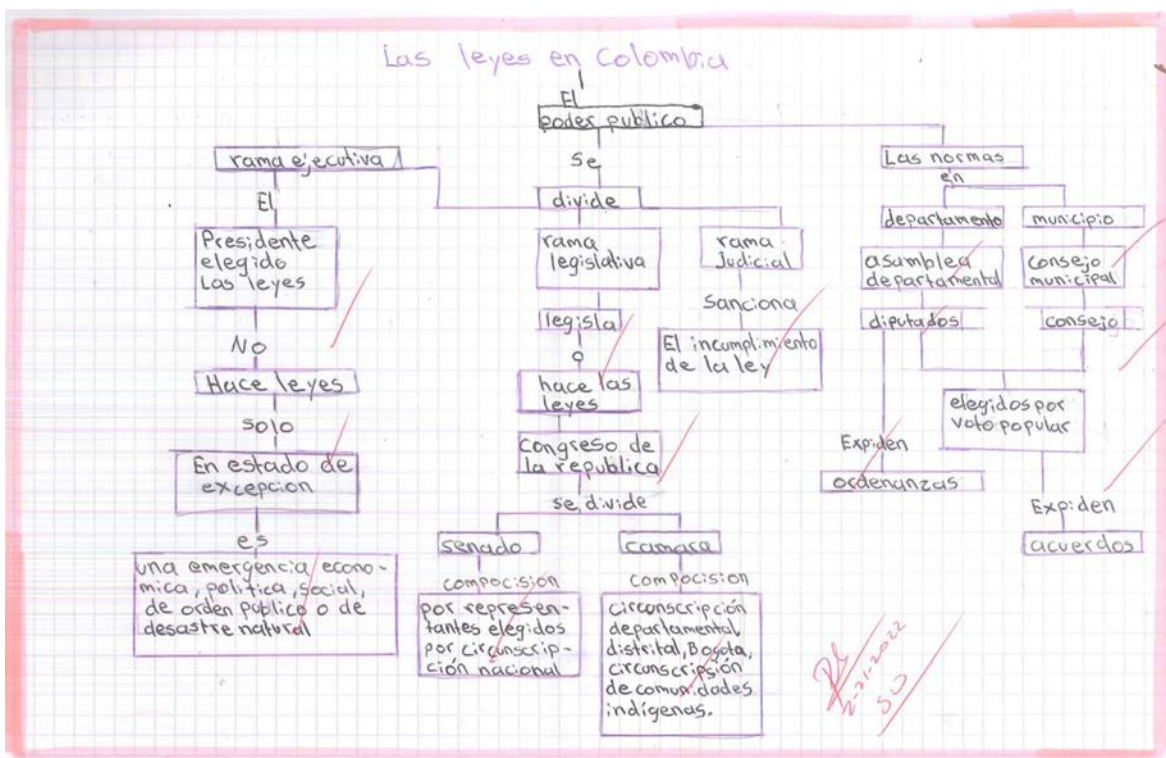 Las leyes en Colombia
El
poder publico
Se
divide
rama ejecutiva
El
Presidente
elegido
Las leyes
No
Hace leyes
solo
En estado de
excepcion
es
una emergencia econo-
mica, politica, social,
de orden público o de
desastre natural
rama
legislativa
legisla
o
hace las
leyes
Congreso de
la republica
se divide
senado
compocision
por represen-
tantes elegidos
por circunscrip-
ción nacional
camara
compocision
circunscripción
departamental
distrital, Bogota,
circunscripsión
de comunidades
indígenas.
rama
Judicial
Sanciona
El incumplimiento
de la ley
Las normas
en
departamento
asamblea
departamental
diputados
Expiden
ordenanzas
municipio
consejo
municipal
consejo
elegidos por
voto popular
Expiden
acuerdos
2-21-2022